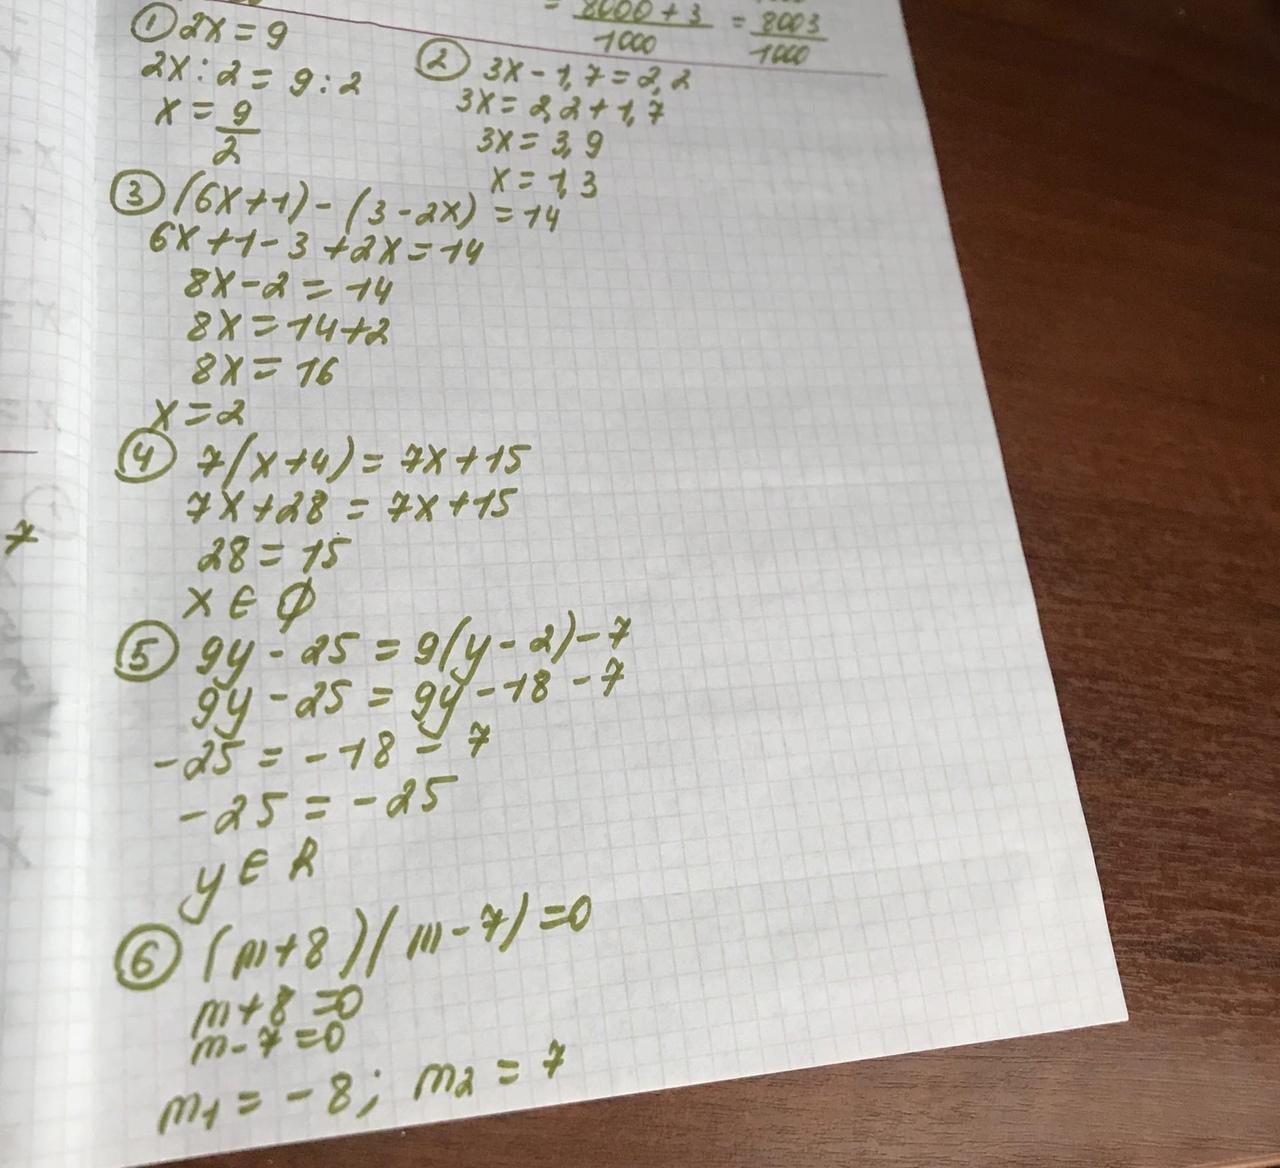 = 8000 + 3 / 1000 = 8003 / 1000
① 2x = 9
2x : 2 = 9 : 2
x = 9/2
② 3x - 1,7 = 2,2
3x = 2,2 + 1,7
3x = 3,9
x = 1,3
③ (6x+1) - (3 - 2x) = 14
6x + 1 - 3 + 2x = 14
8x - 2 = 14
8x = 14+2
8x = 16
x = 2
④ 7(x+4) = 7x+15
7x+28 = 7x+15
28 = 15
x ∈ ∅
⑤ 9y - 25 = 9(y - 2) - 7
9y - 25 = 9y - 18 - 7
-25 = -18 - 7
-25 = -25
y ∈ R
⑥ (m+8)(m-7) = 0
m+8 = 0
m-7 = 0
m1 = -8; m2 = 7
7